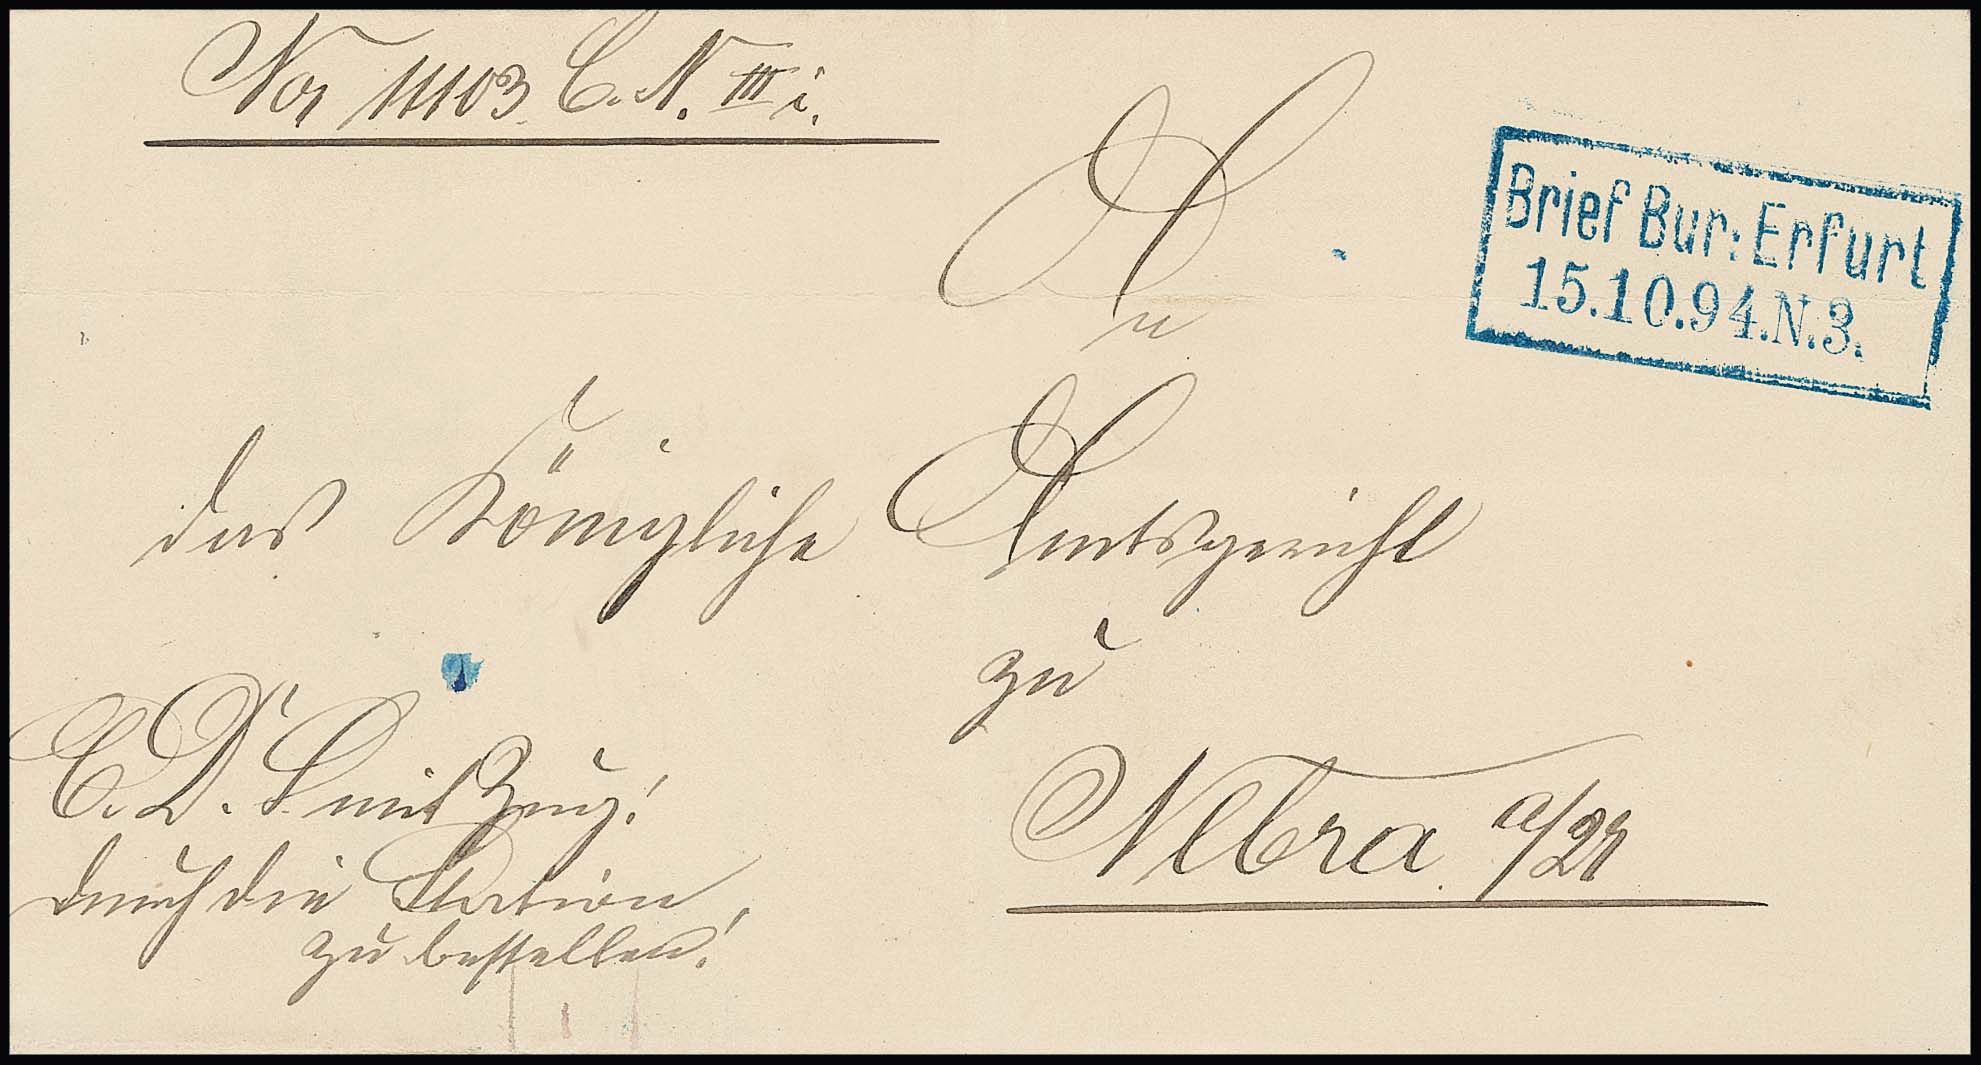 No 11103 C. N. III i.
Brief Bur: Erfurt
15.10.94.N.3.
An
das Königliche Amtsgericht
zu
Nebra a/U
E. D. S. mit Zug!
durch die Station
zu bestellen!